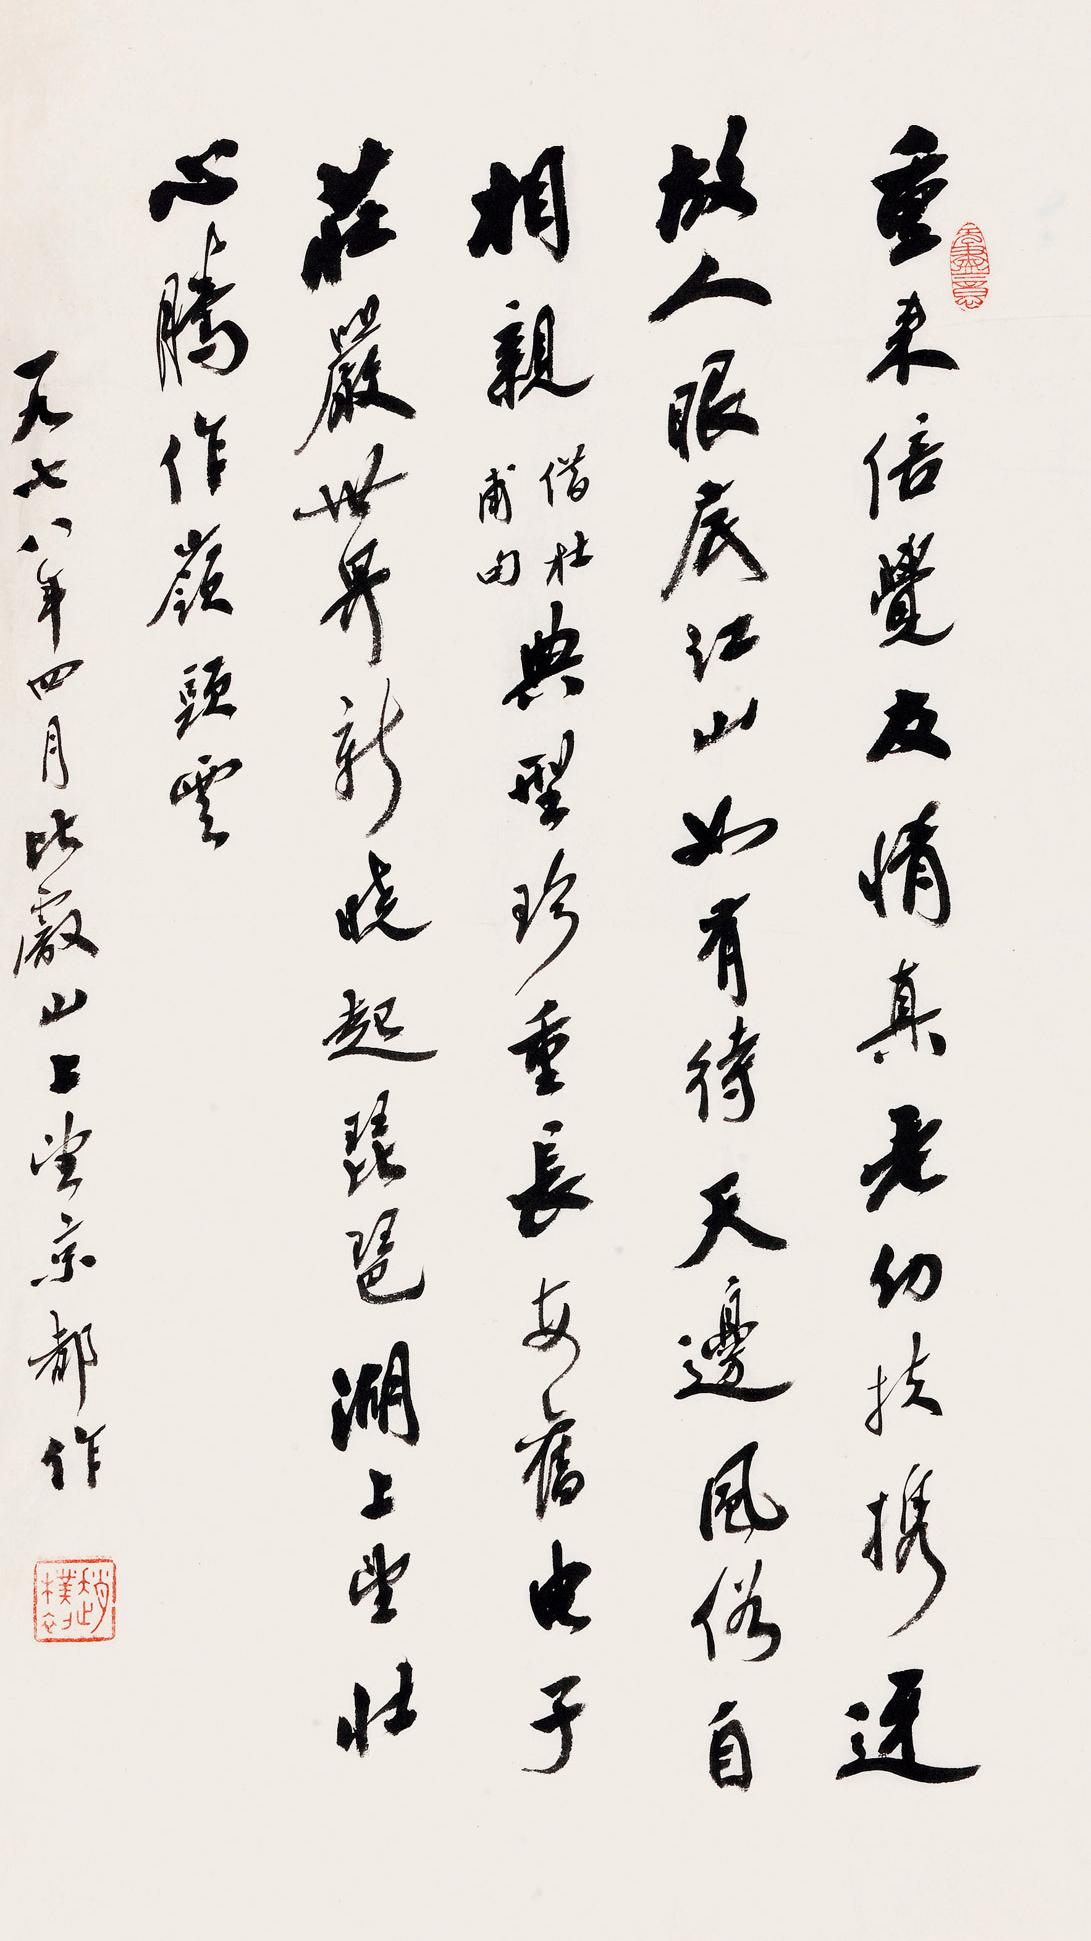 无盡意
重来倍覺友情真老幼扶携迓
故人眼底江山如有待天邊風俗自
相親
借杜
甫句
典型珍重長安舊电子
莊嚴世界新曉起琵琶湖上望壯
心騰作嶺頭雲
一九七八年四月比叡山上望京都作
趙樸初